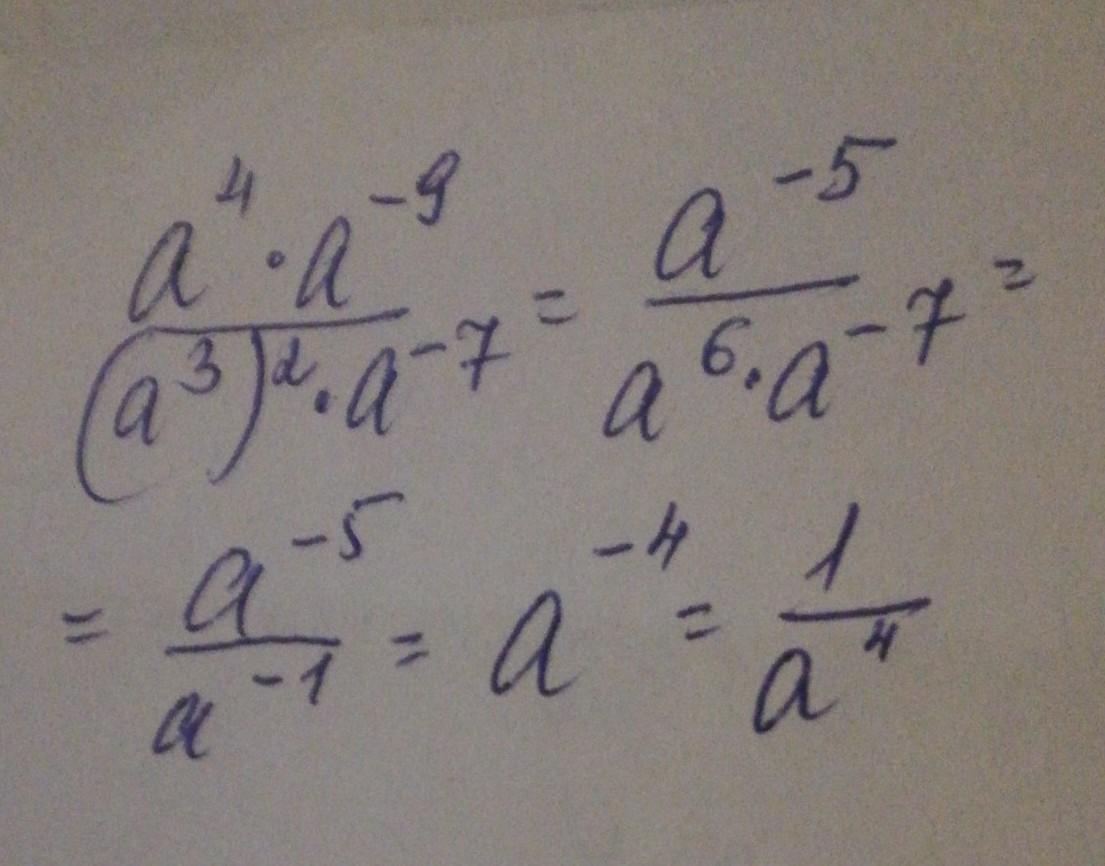 a⁴·a⁻⁹/(a³)²·a⁻⁷ = a⁻⁵/a⁶·a⁻⁷ =
= a⁻⁵/a⁻¹ = a⁻⁴ = 1/a⁴